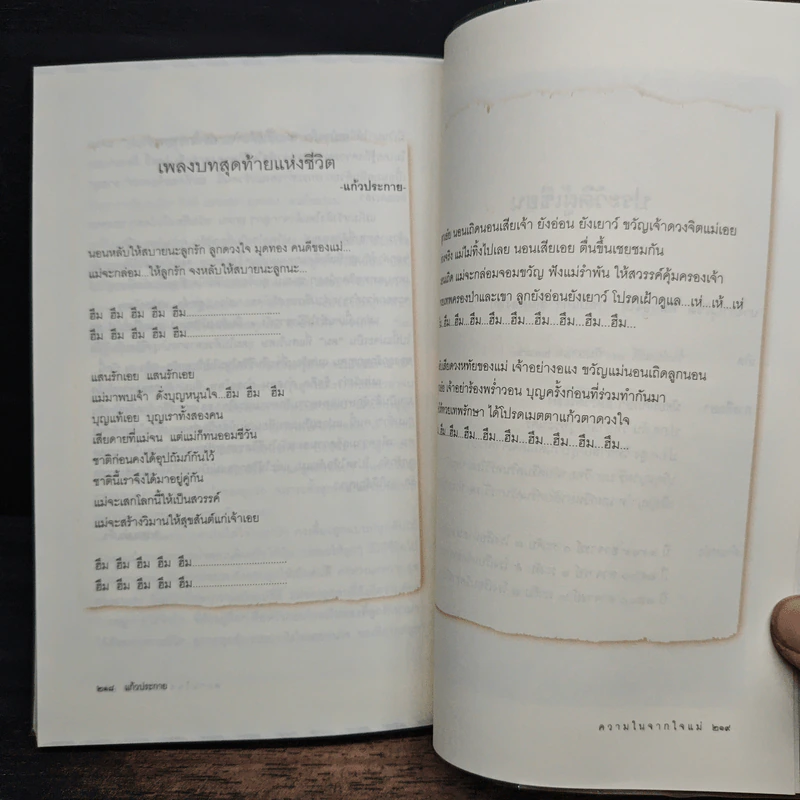 เพลงบทสุดท้ายแห่งชีวิต
-แก้วประกาย-
นอนหลับให้สบายนะลูกรัก ลูกดวงใจ มุดทอง คนดีของแม่...
แม่จะกล่อม...ให้ลูกรัก จงหลับให้สบายนะลูกนะ...
ฮืม ฮืม ฮืม ฮืม ฮืม..............................
ฮืม ฮืม ฮืม ฮืม ฮืม..............................
แสนรักเอย แสนรักเอย
แม่มาพบเจ้า ดั่งบุญหนุนใจ...ฮืม ฮืม ฮืม
บุญแท้เอย บุญเราทั้งสองคน
เสียดายที่แม่จน แต่แม่ก็ทนออมชีวัน
ชาติก่อนคงได้อุปถัมภ์กันไว้
ชาตินี้เราจึงได้มาอยู่คู่กัน
แม่จะเสกโลกนี้ให้เป็นสวรรค์
แม่จะสร้างวิมานให้สุขสันต์แก่เจ้าเอย
ฮืม ฮืม ฮืม ฮืม ฮืม..............................
ฮืม ฮืม ฮืม ฮืม ฮืม..............................
๒๑๘ แก้วประกาย
นอนเถิดนอนเสียเจ้า ยังอ่อน ยังเยาว์ ขวัญเจ้าดวงจิตแม่เอย
แม่ไม่ทิ้งไปเลย นอนเสียเอย ตื่นขึ้นเชยชมกัน
แม่จะกล่อมจอมขวัญ ฟังแม่รำพัน ให้สวรรค์คุ้มครองเจ้า
เทพครองป่าและเขา ลูกยังอ่อนยังเยาว์ โปรดเฝ้าดูแล...เห่...เห้...เห่
ฮืม...ฮืม...ฮืม...ฮืม...ฮืม...ฮืม...ฮืม...ฮืม...ฮืม...
ดวงหทัยของแม่ เจ้าอย่างอแง ขวัญแม่นอนเถิดลูกนอน
เจ้าอย่าร้องพร่ำวอน บุญครั้งก่อนที่ร่วมทำกันมา
ทวยเทพรักษา ได้โปรดเมตตาแก้วตาดวงใจ
ฮืม...ฮืม...ฮืม...ฮืม...ฮืม...ฮืม...ฮืม...ฮืม...ฮืม...
ความในจากใจแม่ ๒๑๙